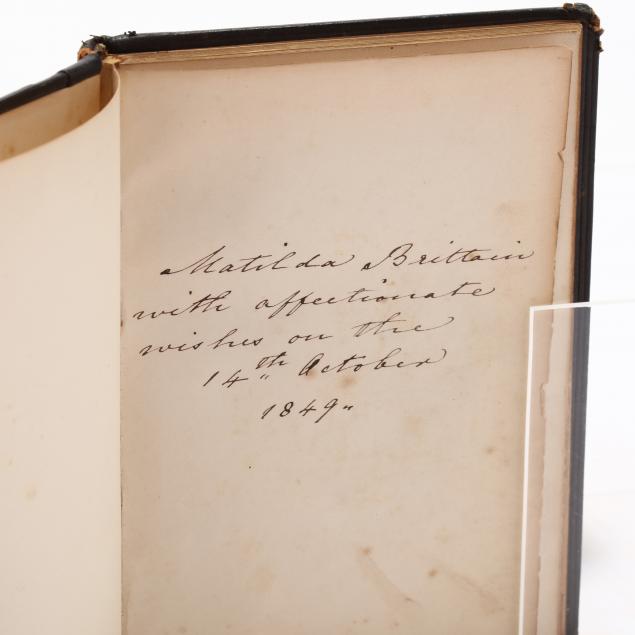 Matilda Brittain
with affectionate
wishes on the
14th October
1849